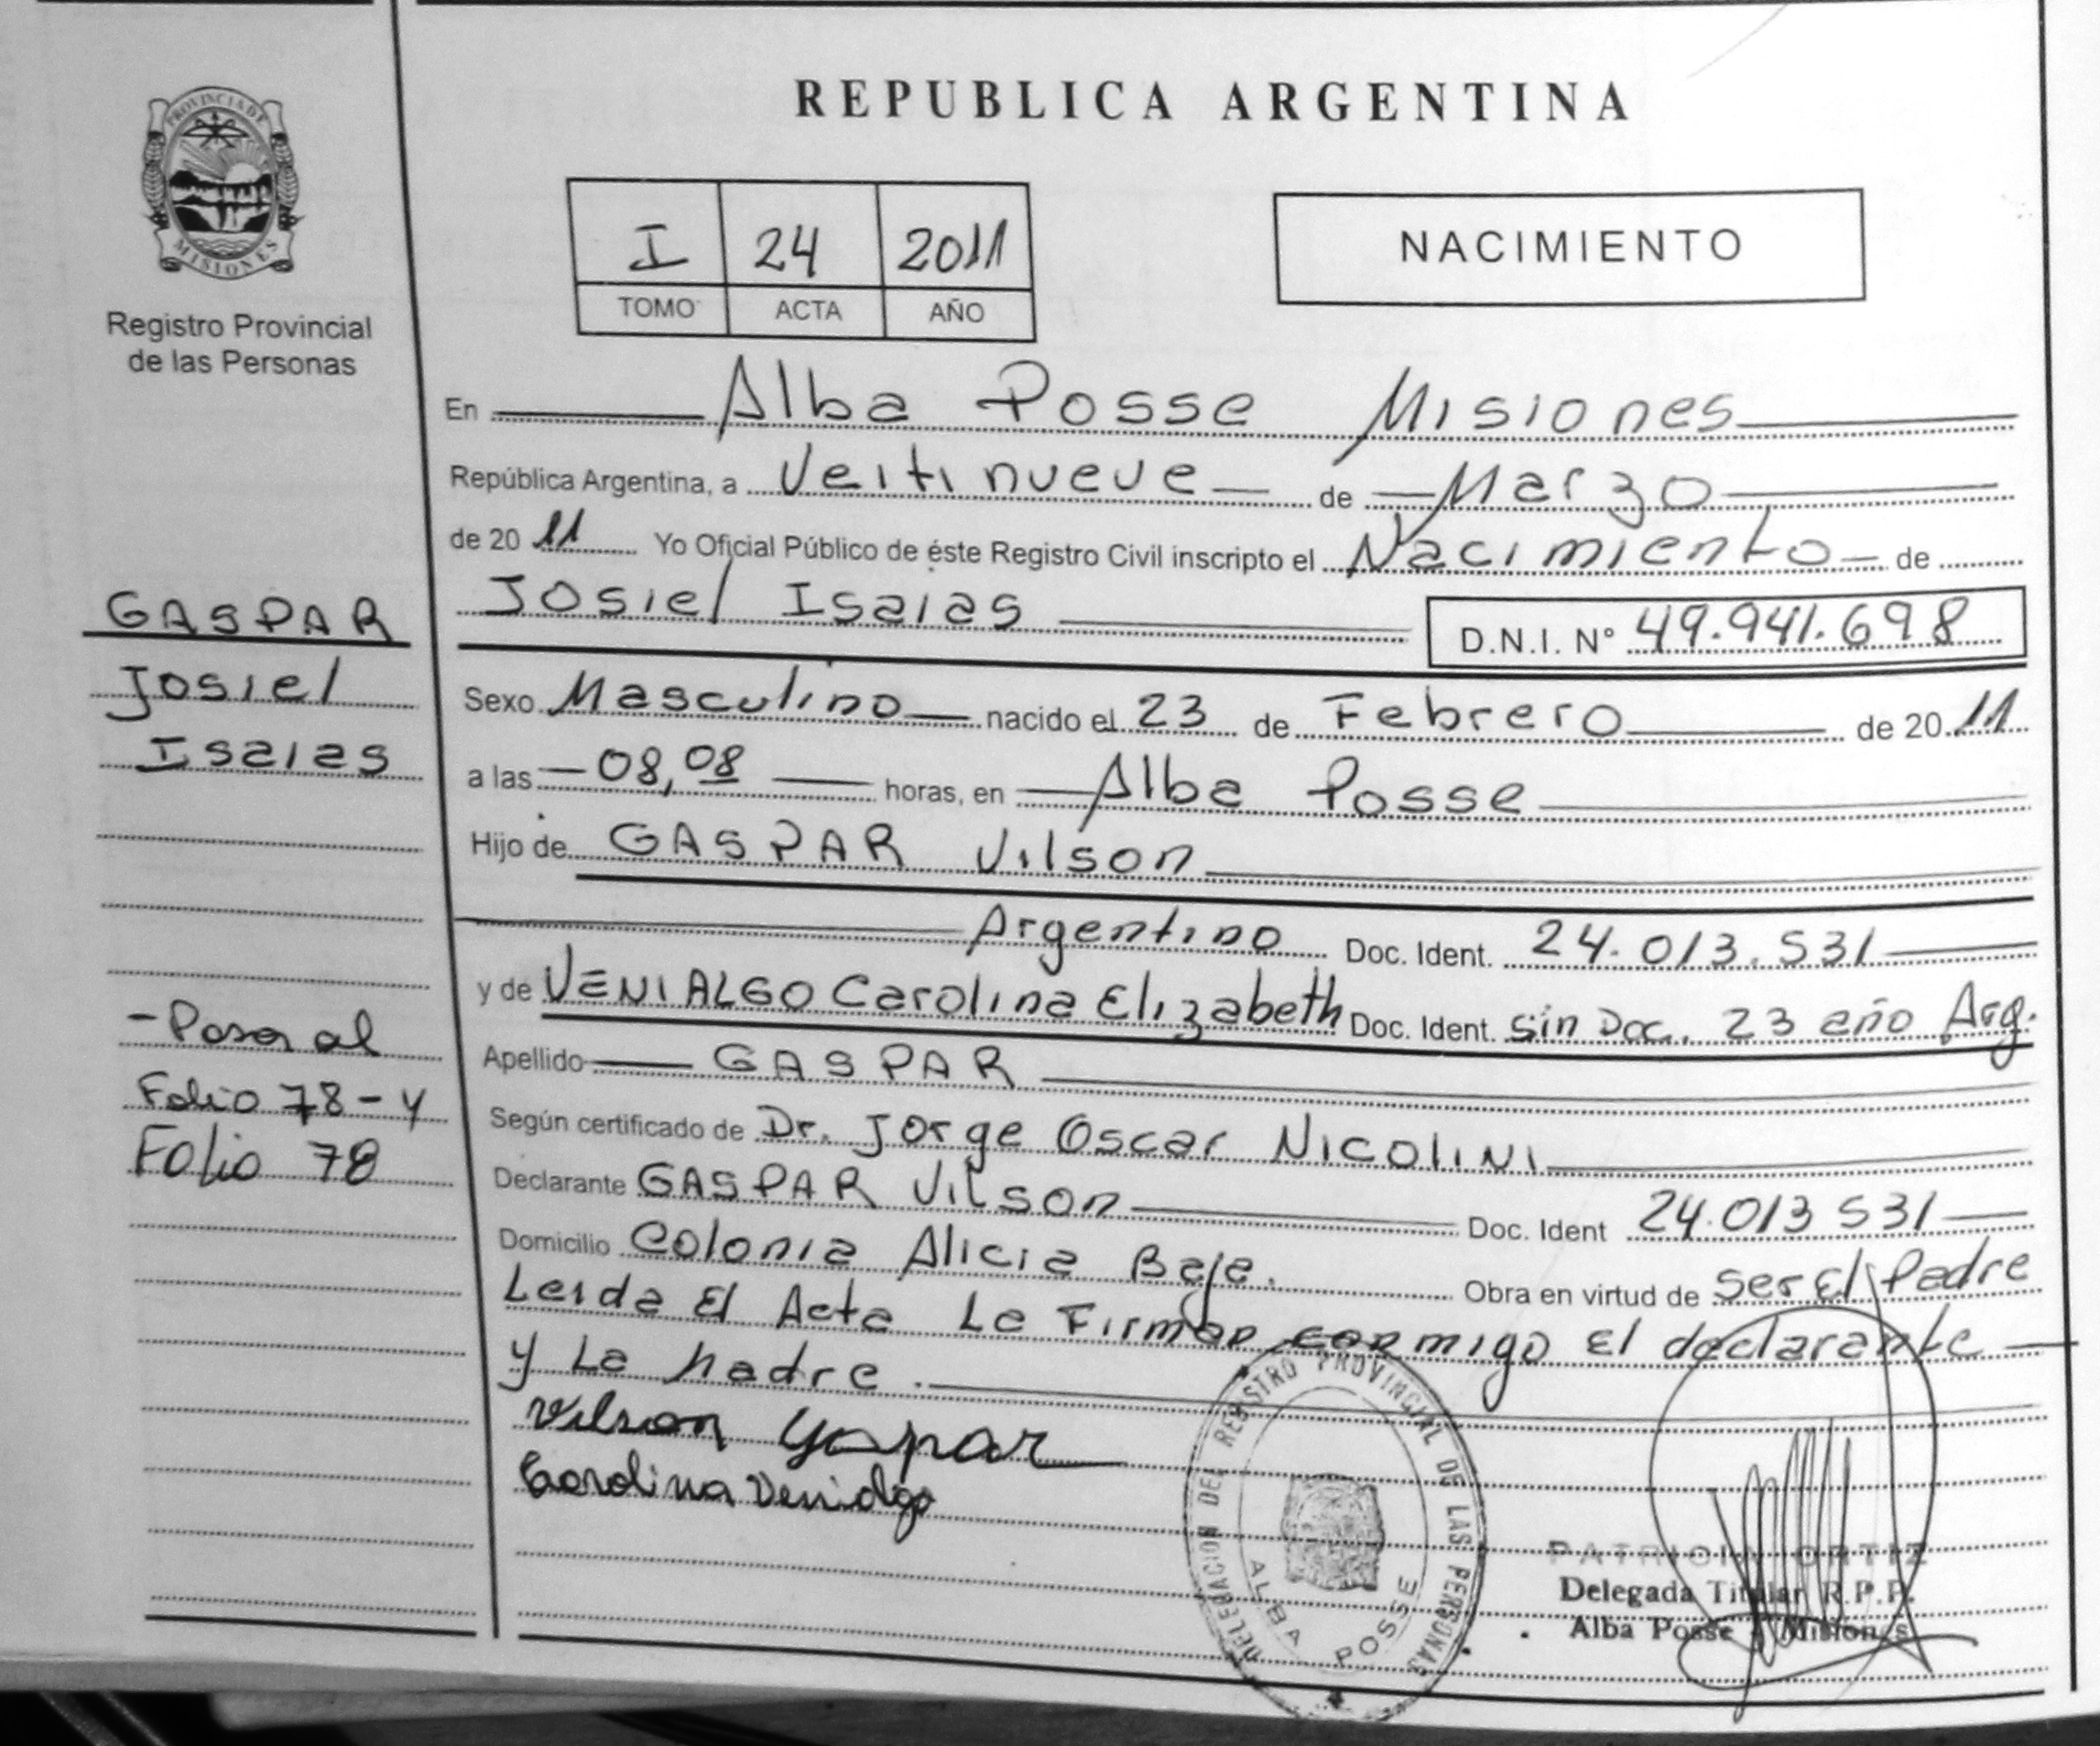 PROVINCIA DE
MISIONES
Registro Provincial
de las Personas
GASPAR
Josiel
Isaias
- Pasar al
Folio 78 - y
Folio 78
REPUBLICA ARGENTINA
I 24 2011
TOMO ACTA AÑO
NACIMIENTO
En Alba Posse Misiones
República Argentina, a Veitinueve de Marzo
de 20 11 Yo Oficial Público de éste Registro Civil inscripto el Nacimiento de
Josiel Isaias D.N.I. N° 49.941.698
Sexo Masculino nacido el 23 de Febrero de 20 11
a las 08,08 horas, en Alba Posse
Hijo de GASPAR Vilson
Argentino Doc. Ident. 24.013.531
y de VENIALGO Carolina Elizabeth Doc. Ident. sin Doc. 23 año Arg.
Apellido GASPAR
Según certificado de Dr. Jorge Oscar NICOLINI
Declarante GASPAR Vilson Doc. Ident 24.013 531
Domicilio Colonia Alicia Baja. Obra en virtud de ser El Padre
Leida El Acta La Firman conmigo El declarante
y La Madre.
Vilson Gaspar
Carolina Venialgo
DELEGACION DEL REGISTRO PROVINCIAL DE LAS PERSONAS
ALBA POSSE
PATRICIA ORTIZ
Delegada Titular R.P.P.
Alba Posse - Misiones